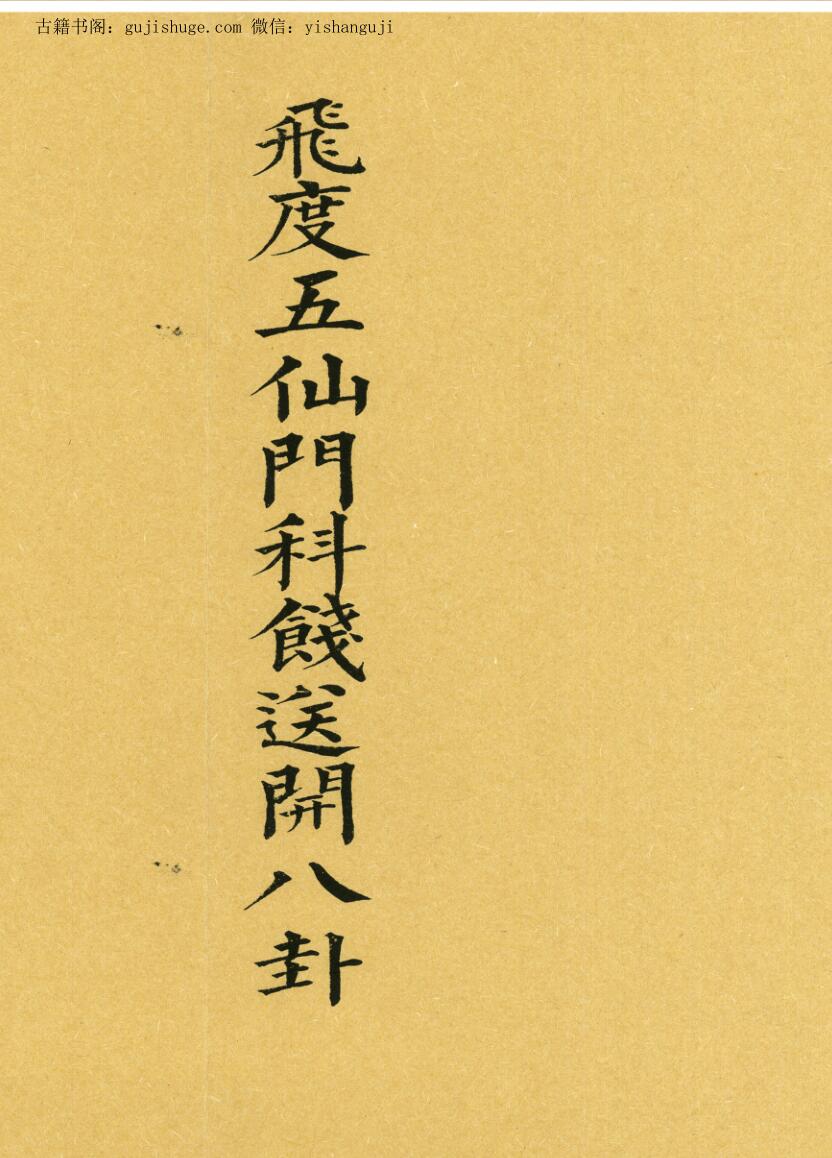 古籍书阁：gujishuge.com 微信：yishanguji
飛度五仙門科餞送開八卦